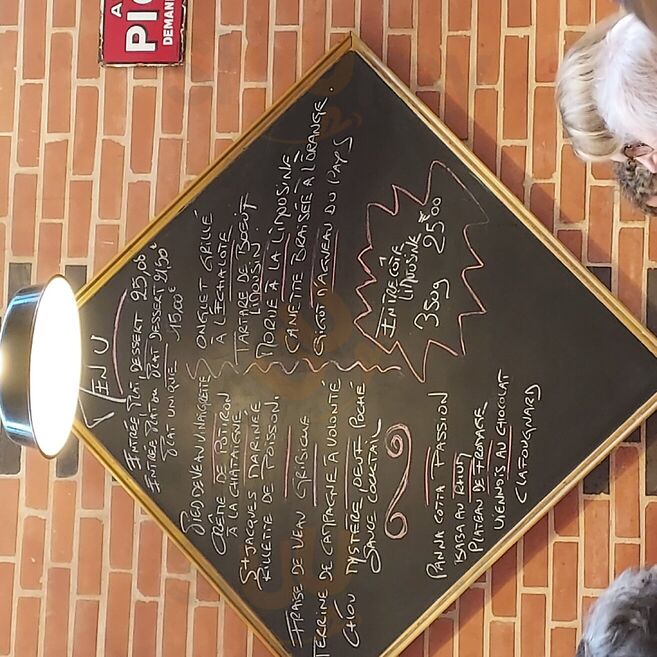 MENU
ENTRÉE PLAT, DESSERT 25,00
ENTRÉE PLAT OU PLAT DESSERT 21,50 €
PLAT UNIQUE 15,00 €
PIED DE VEAU VINAIGRETTE
CRÈME DE POTIRON
À LA CHATAIGNE
St JACQUES MARINÉE
RILLETTE DE POISSON.
FRAISE DE VEAU GRIBICHE
TERRINE DE CAMPAGNE À VOLONTÉ
CHOU MYSTÈRE, OEUF POCHÉ
SAUCE COCKTAIL
ONGLET GRILLÉ
À L'ÉCHALOTE
TARTARE DE BOEUF
LIMOUSIN.
MORUE À LA LIMOUSINE
CANETTE BRAISÉE À L'ORANGE.
GIGOT D'AGNEAU DU PAYS
ENTRECÔTE
LIMOUSINE
350g 25€00
PANNA COTTA PASSION
BABA AU RHUM
PLATEAU DE FROMAGE
VIENNOIS AU CHOCOLAT
CLAFOUGNARD
A
DEMAN